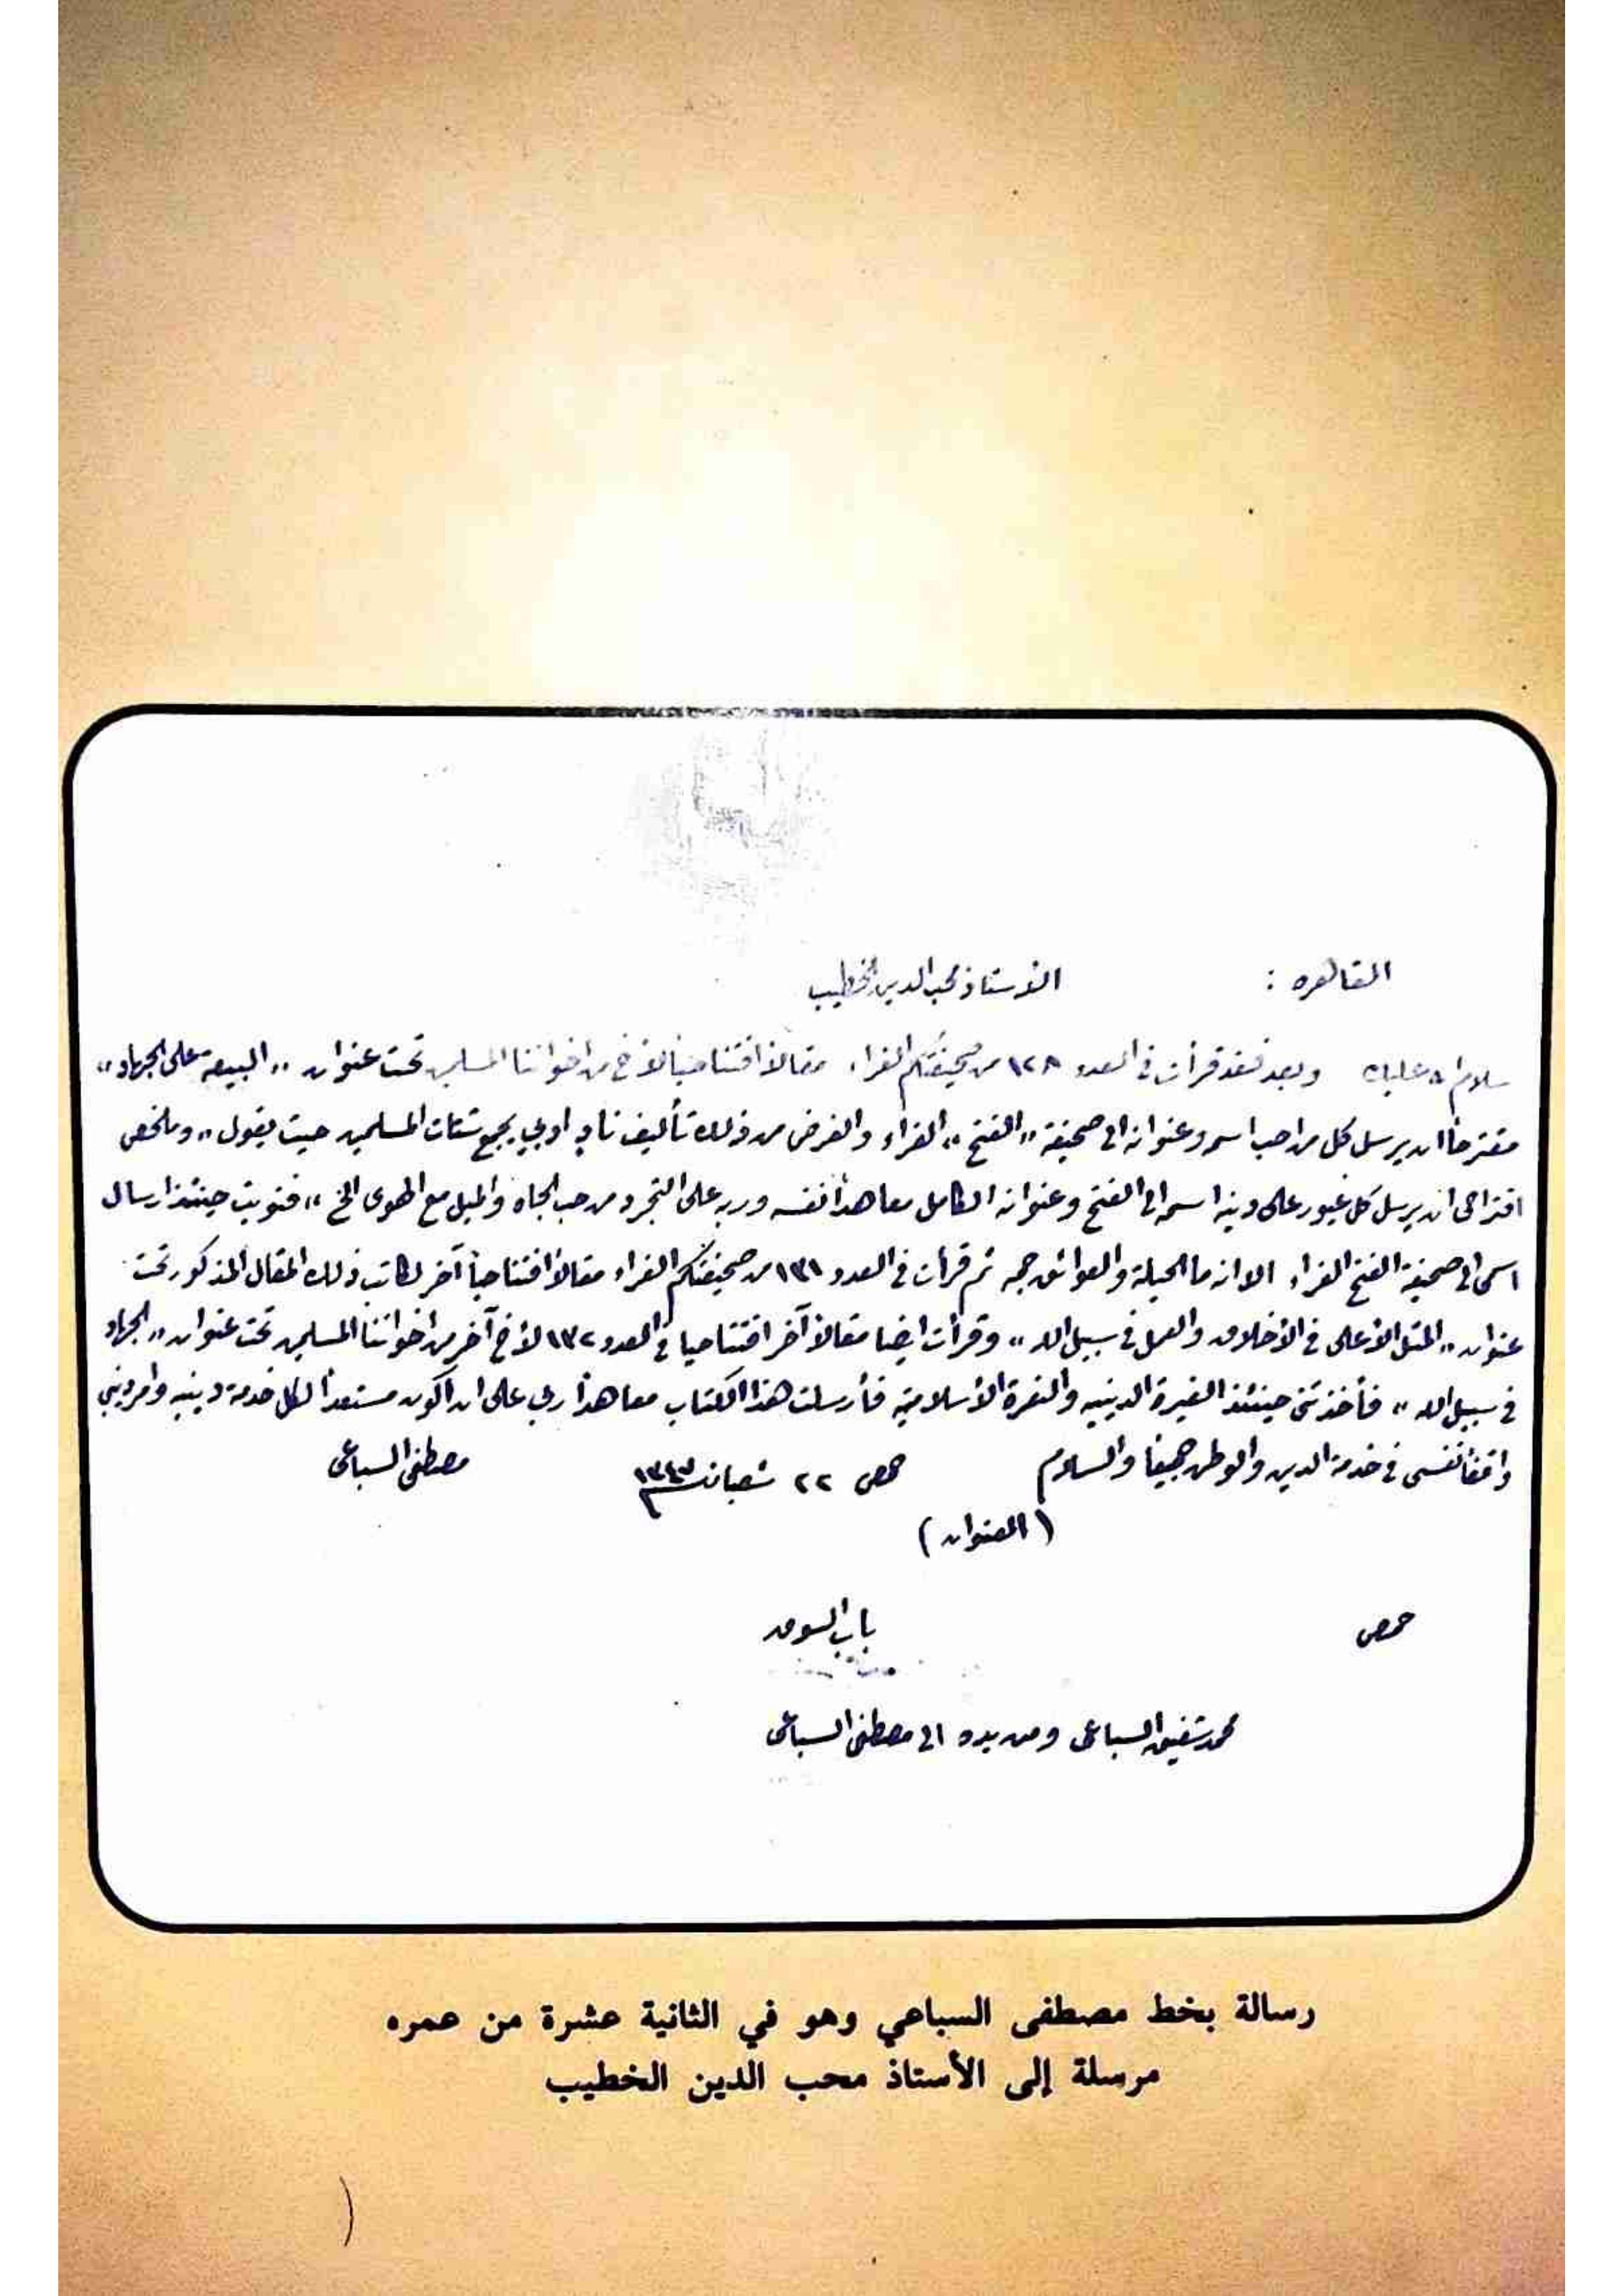 القاهره : الأستاذ محب الدين الخطيب
سلام الله عليك وبعد فقد قرأت في العدد ١٢٨ من صحيفتكم الغراء مقالا افتتاحياً لأخ من اخواننا المسلمين تحت عنوان „ البيعة على الجهاد „
مقترحاً ان يرسل كل من احب اسمه وعنوانه الى صحيفة „ الفتح „ الغراء والغرض من ذلك تأليف ناد ادبي يجمع شتات المسلمين حيث يقول „ وملخص
اقتراحي ان يرسل كل غيور على دينه اسمه الى الفتح وعنوانه الكامل معاهداً نفسه وربه على التجرد من حب الجاه والميل مع الهوى الخ „ فنويت حينئذ ارسال
اسمي الى صحيفة الفتح الغراء الا انه ما الحيلة والعوائق جمه ثم قرأت في العدد ١٣١ من صحيفتكم الغراء مقالا افتتاحياً آخر لكاتب ذلك المقال المذكور تحت
عنوان „ المثل الأعلى في الأخلاق والعمل في سبيل الله „ وقرأت ايضا مقالا آخر افتتاحيا في العدد ١٣٢ لأخ آخر من اخواننا المسلمين تحت عنوان „ الجهاد
في سبيل الله „ فأخذتني حينئذ الغيرة الدينيه والنعرة الأسلامية فأرسلت هذا الكتاب معاهداً ربي على ان اكون مستعداً لكل خدمة دينيه
واقفاً نفسي في خدمة الدين والوطن جميعًا والسلام حمص ٢٢ شعبان مصطفى السباعى
( العنوان )
حمص باب السوق
محمد شفيق السباعى ومن يده الى مصطفى السباعى
رسالة بخط مصطفى السباعي وهو في الثانية عشرة من عمره
مرسلة إلى الأستاذ محب الدين الخطيب